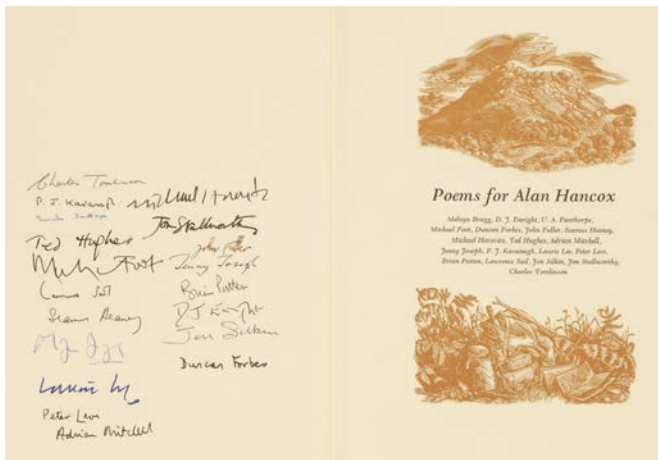 Charles Tomlinson
P. J. Kavanagh
Michael Horovitz
Ted Hughes
Jon Stallworthy
John Fuller
Michael Foot
Jenny Joseph
Lawrence Sail
Brian Patten
Seamus Heaney
D J Enright
Jon Silkin
Duncan Forbes
Laurie Lee
Peter Levi
Adrian Mitchell
Poems for Alan Hancox
Melvyn Bragg, D. J. Enright, U. A. Fanthorpe,
Michael Foot, Duncan Forbes, John Fuller, Seamus Heaney,
Michael Horovitz, Ted Hughes, Adrian Mitchell,
Jenny Joseph, P. J. Kavanagh, Laurie Lee, Peter Levi,
Brian Patten, Lawrence Sail, Jon Silkin, Jon Stallworthy,
Charles Tomlinson